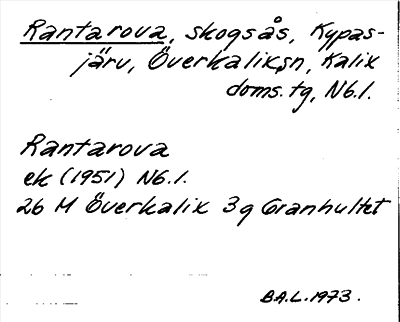 Rantarova, skogsås, Kypas-
järv, Överkalix sn, Kalix
doms. tg, Nb.l.
Rantarova
ek (1951) Nb.l.
26 M Överkalix 3g Granhultet
B.A.L. 1973.